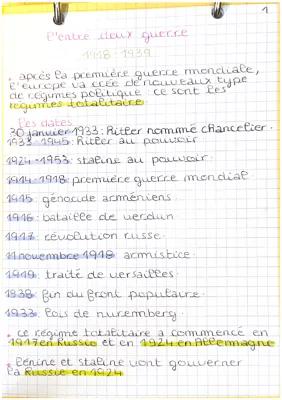 1
l'entre deux guerre
1918-1939
• après la première guerre mondiale,
l'europe va crée de nouveaux type
de régimes politique : ce sont les
régimes totalitaire.
Les dates
30 janvier 1933: Hitler nommé chancelier.
1933-1945: Hitler au pouvoir
1924-1953: staline au pouvoir.
1914-1918: première guerre mondial
1915: génocide arméniens.
1916: bataille de verdun
1917: révolution russe.
11 novembre 1918 armistice.
1919: traité de versailles.
1938: fin du front populaire.
1933: lois de nuremberg.
• ce régime totalitaire a commencé en
1917 en Russie et en 1924 en Allemagne
• Lénine et staline vont gouverner
la Russie en 1924